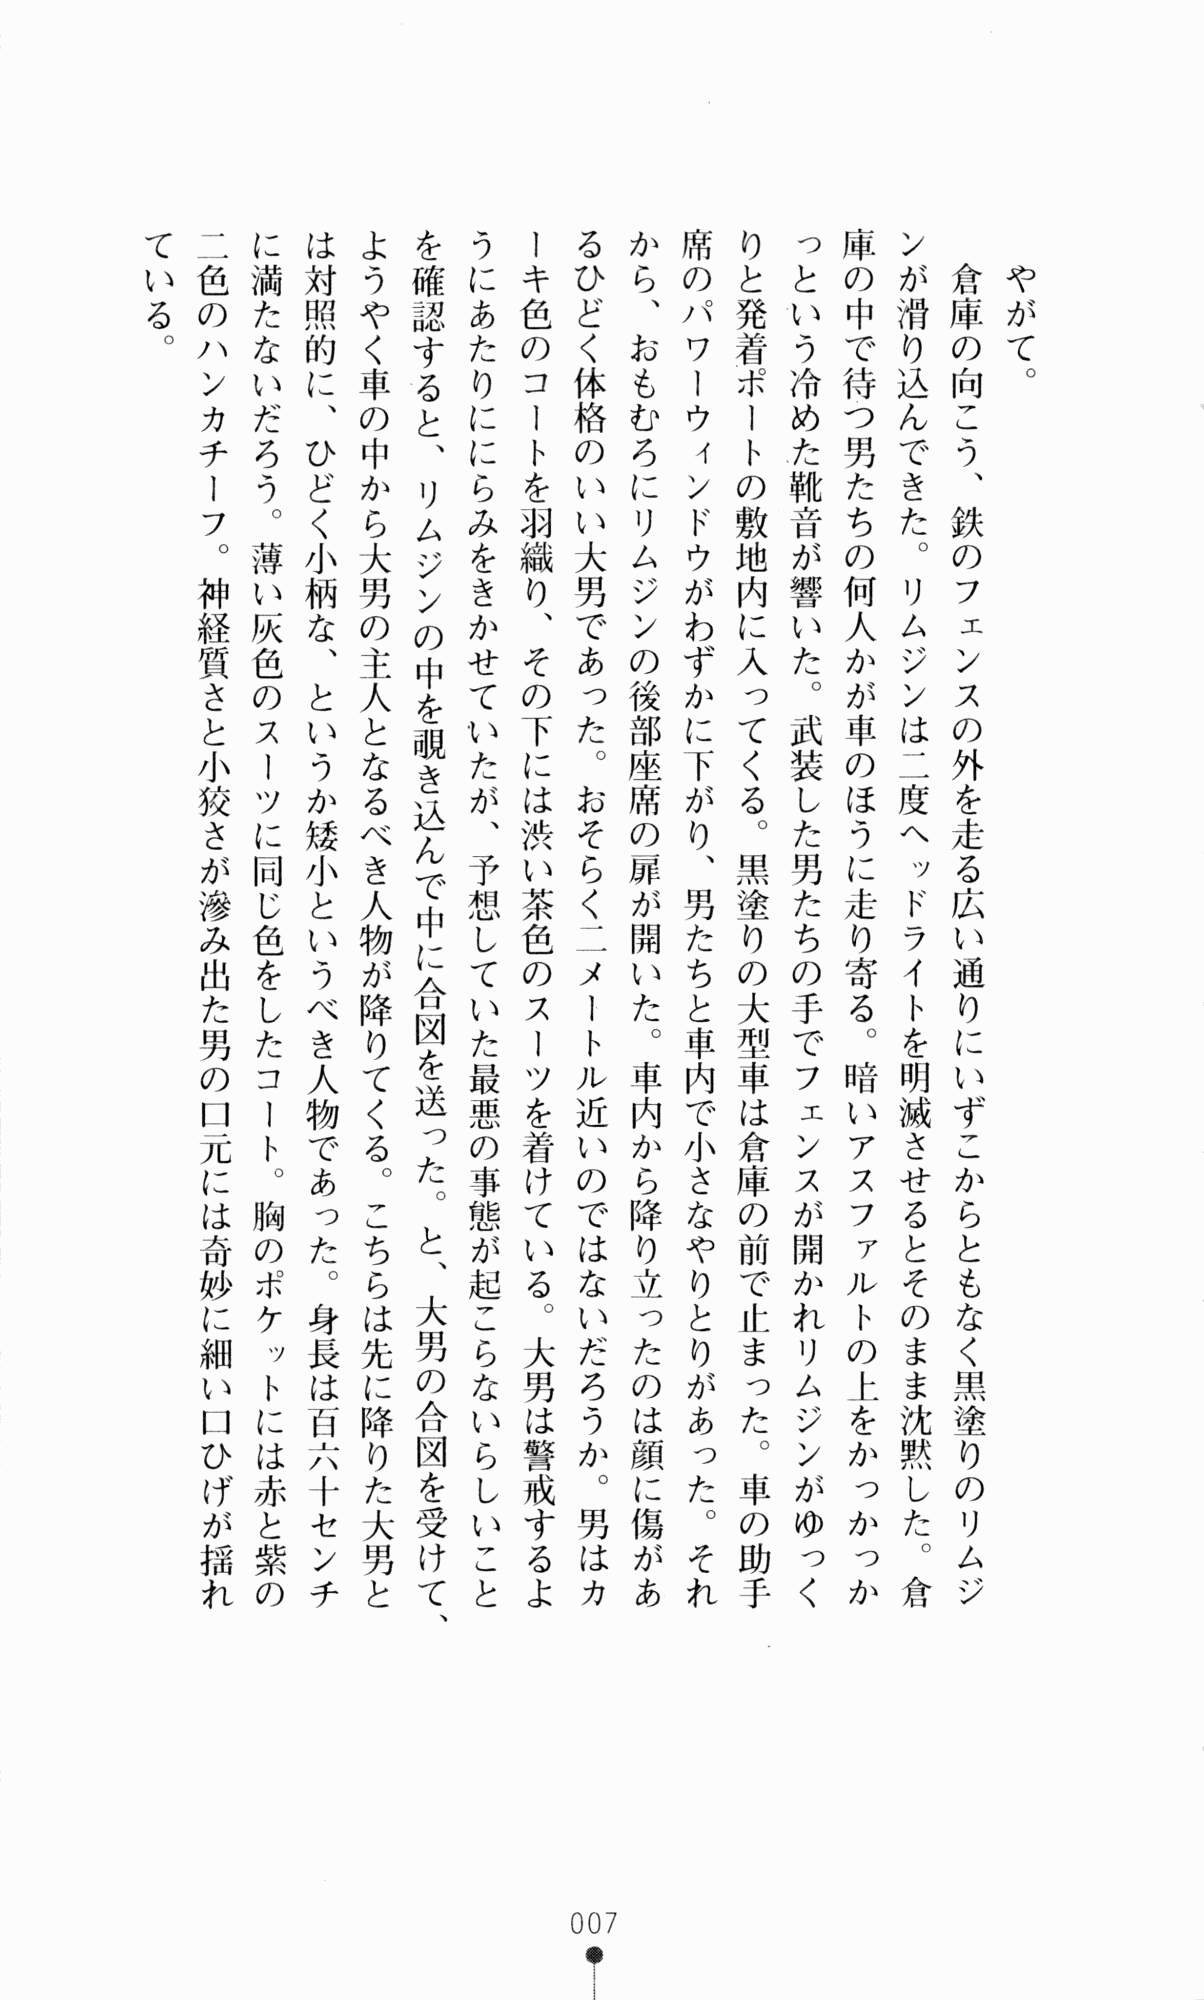 やがて。
倉庫の向こう、鉄のフェンスの外を走る広い通りにいずこからともなく黒塗りのリムジ
ンが滑り込んできた。リムジンは二度ヘッドライトを明滅させるとそのまま沈黙した。倉
庫の中で待つ男たちの何人かが車のほうに走り寄る。暗いアスファルトの上をかっかっか
っという冷めた靴音が響いた。武装した男たちの手でフェンスが開かれリムジンがゆっく
りと発着ポートの敷地内に入ってくる。黒塗りの大型車は倉庫の前で止まった。車の助手
席のパワーウィンドウがわずかに下がり、男たちと車内で小さなやりとりがあった。それ
から、おもむろにリムジンの後部座席の扉が開いた。車内から降り立ったのは顔に傷があ
るひどく体格のいい大男であった。おそらく二メートル近いのではないだろうか。男はカ
ーキ色のコートを羽織り、その下には渋い茶色のスーツを着けている。大男は警戒するよ
うにあたりににらみをきかせていたが、予想していた最悪の事態が起こらないらしいこと
を確認すると、リムジンの中を覗き込んで中に合図を送った。と、大男の合図を受けて、
ようやく車の中から大男の主人となるべき人物が降りてくる。こちらは先に降りた大男と
は対照的に、ひどく小柄な、というか矮小というべき人物であった。身長は百六十センチ
に満たないだろう。薄い灰色のスーツに同じ色をしたコート。胸のポケットには赤と紫の
二色のハンカチーフ。神経質さと小狡さが滲み出た男の口元には奇妙に細い口ひげが揺れ
ている。
007